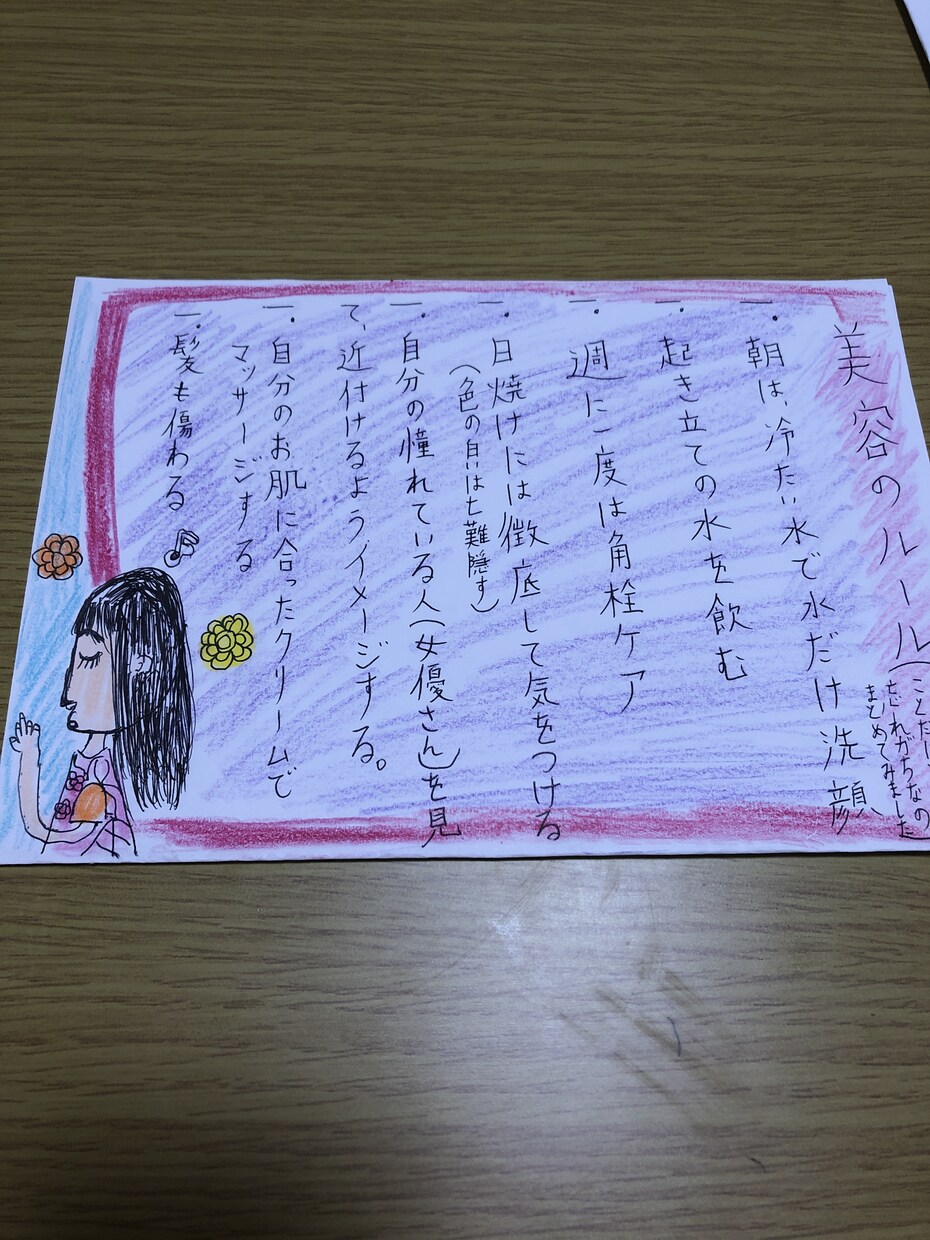 美容のルール(ことだし
だれがちなの
まとめてみました)
一.朝は、冷たい水で水だけ洗顔
一.起き立ての水を飲む
一.週に一度は角栓ケア
一.日焼けには徹底して気をつける
(色の白いは七難隠す)
一.自分の憧れている人(女優さん)を見
て、近付けるようイメージする。
一.自分のお肌に合ったクリームで
マッサージする
一.髪も傷わる